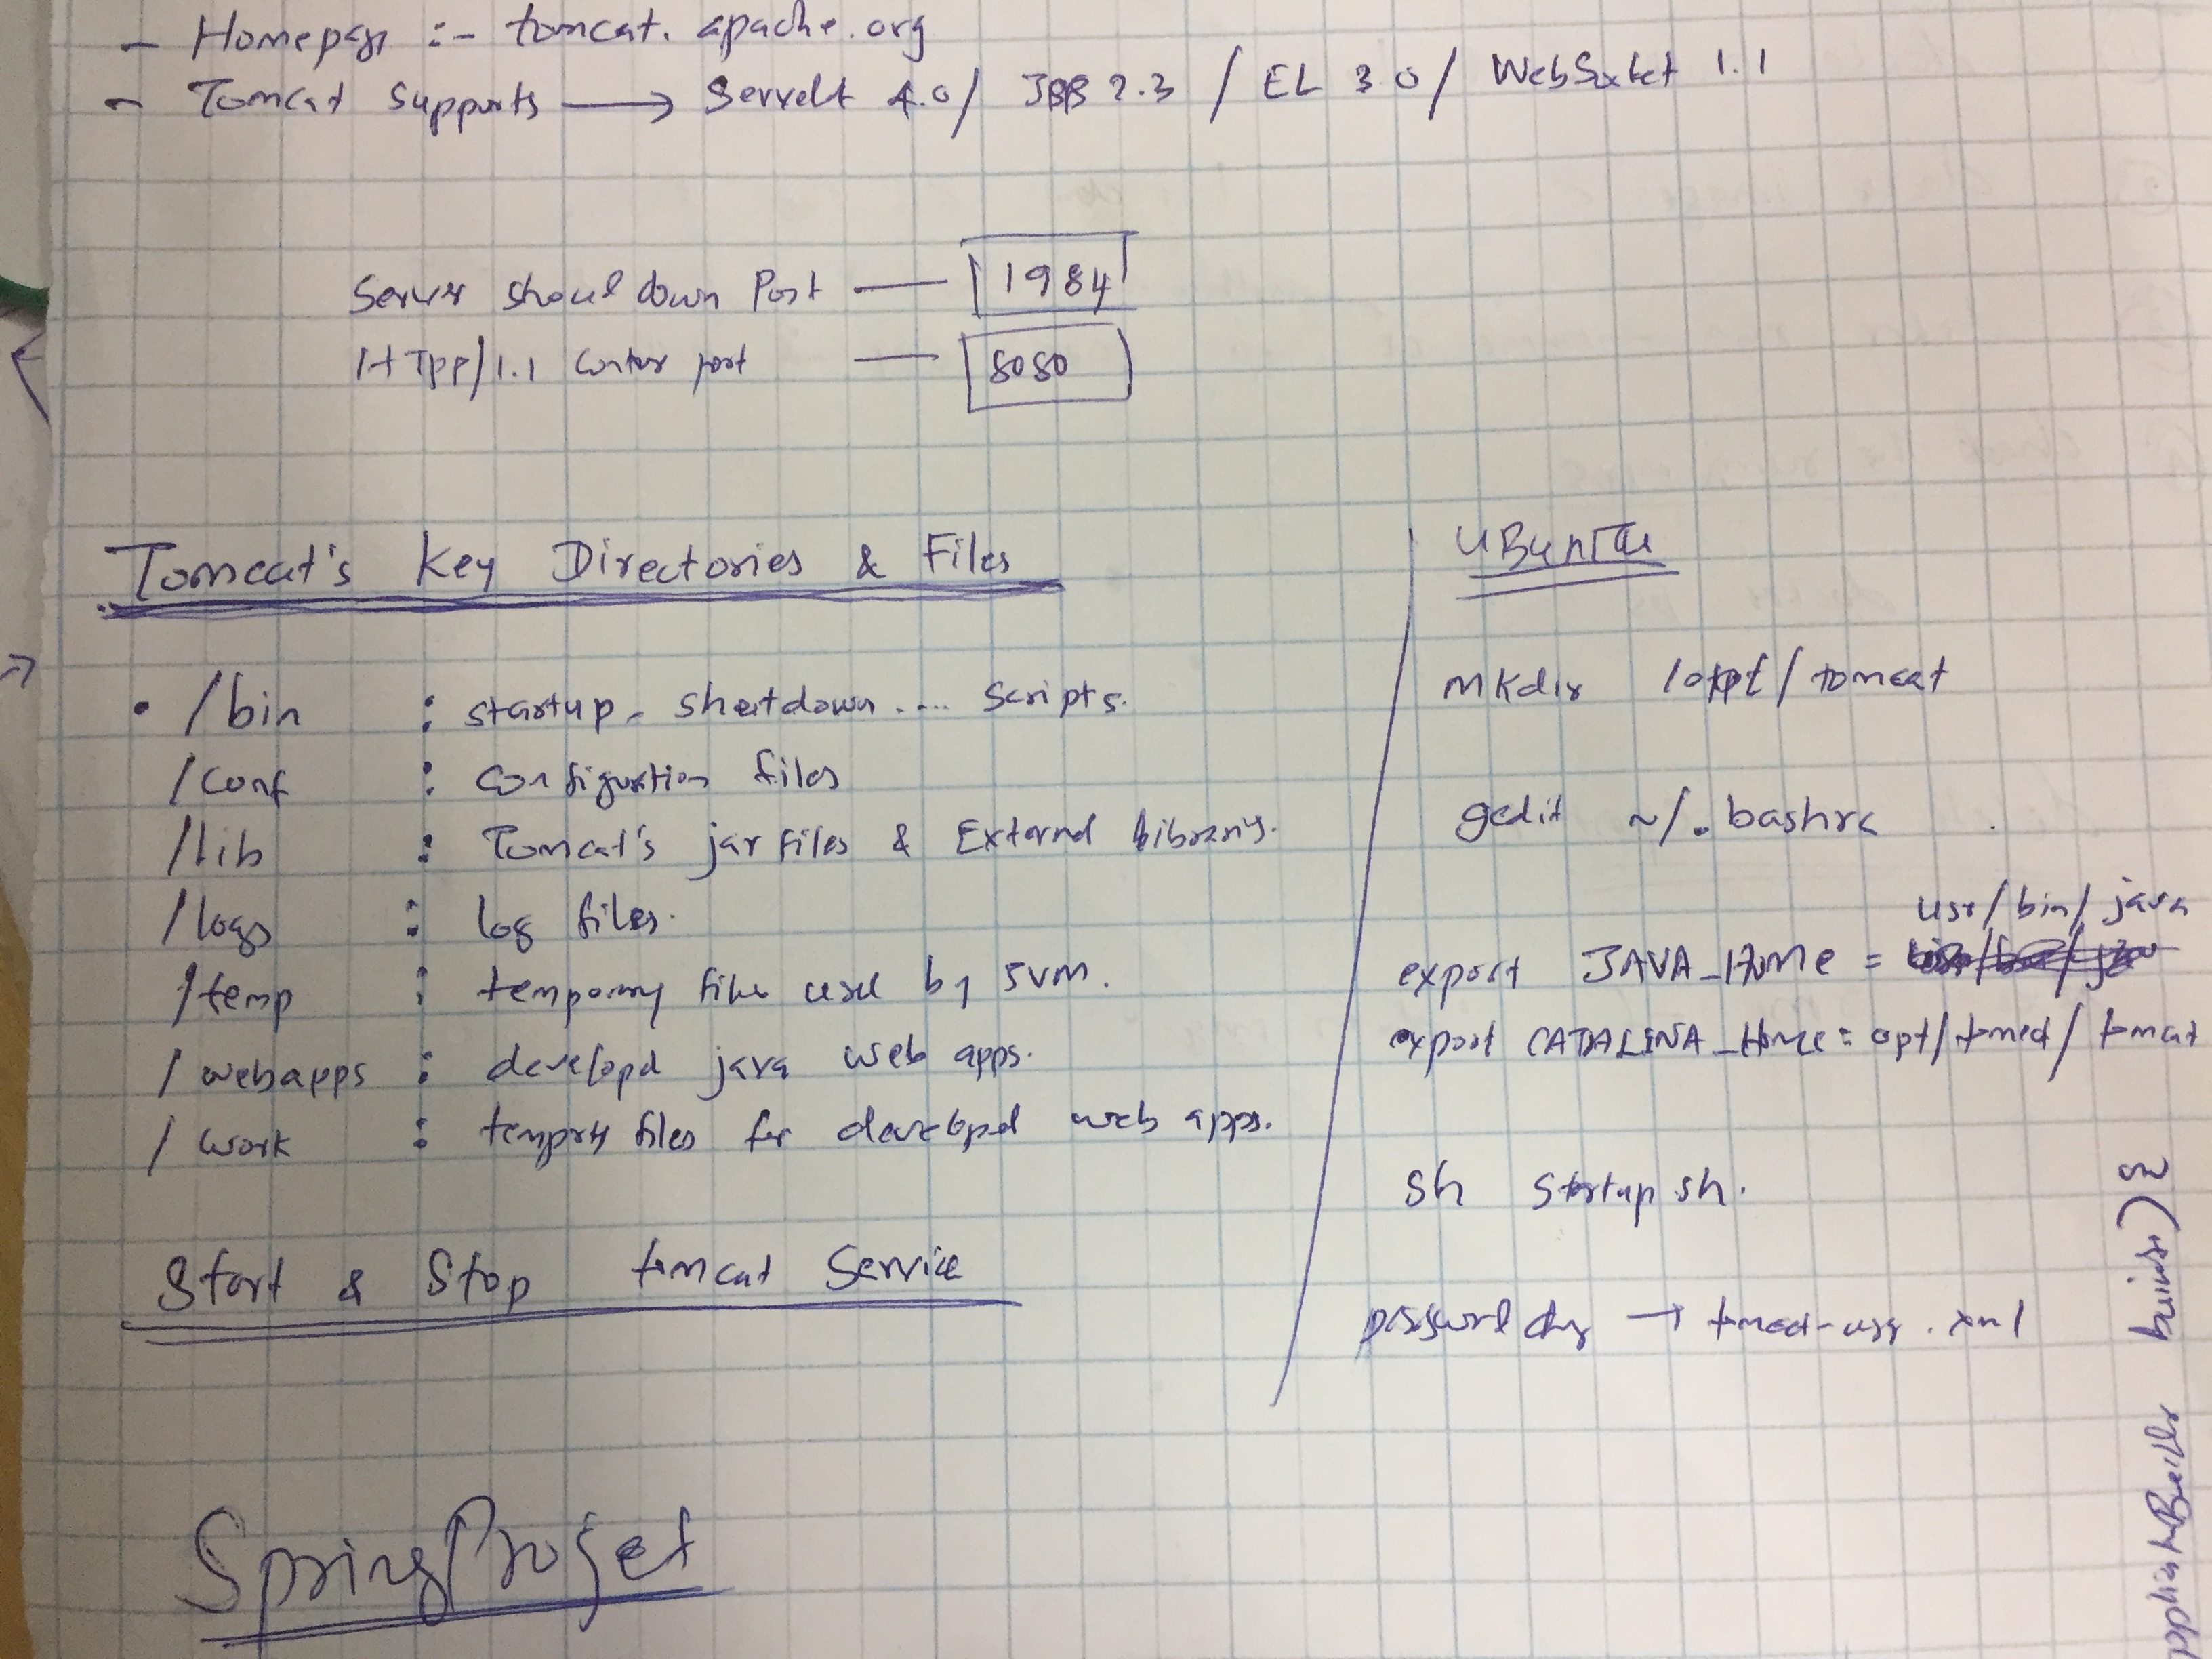 - Homepage :- tomcat.apache.org
- Tomcat supports → Servelt 4.0 / JSP 2.3 / EL 3.0 / WebSocket 1.1
Server shoul down Port — 1984
HTTP/1.1 port — 8080
Tomcat's Key Directories & Files
• /bin : startup, shutdown.... scripts.
/conf : configuration files
/lib : Tomcat's jar files & External
/logs : log files.
/temp : temporary files use by JVM.
/webapps : java web apps.
/work : files for web apps.
Start & Stop tomcat Service
Ubuntu
mkdir /opt/tomcat
gedit ~/.bashrc
export JAVA_HOME = usr/bin/java
export CATALINA_HOME = opt/tomcat/tomcat
sh startup.sh.
→ .xml